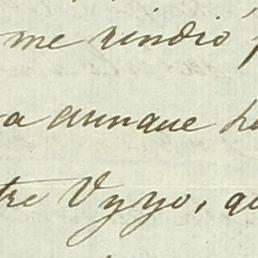 me rindió
a aunque
tre Vyyo, q